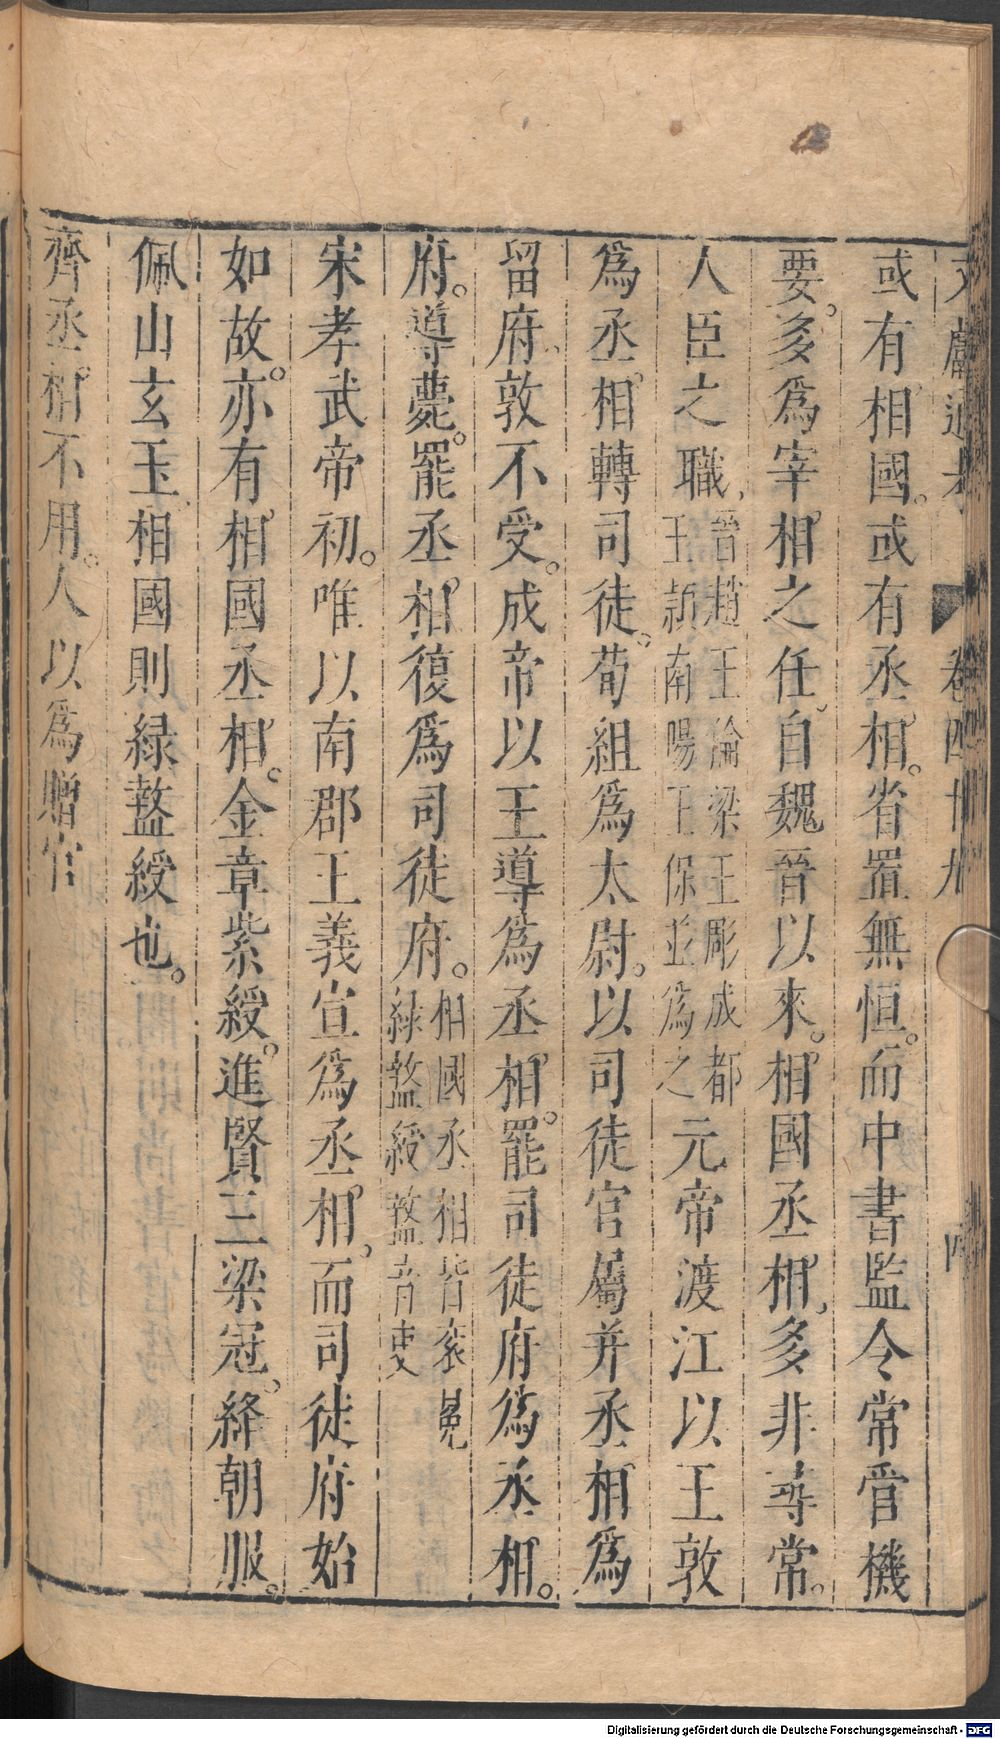 文獻通考 卷四十九 四
或有相國。或有丞相。省置無恒。而中書監令常管機
要。多爲宰相之任。自魏晉以來。相國丞相。多非尋常。
人臣之職。晉趙王淪梁王彫成都王頴南陽王保並爲之元帝渡江以王敦
爲丞相。轉司徒。荀組爲太尉。以司徒官屬并丞相爲
留府。敦不受。成帝以王導爲丞相。罷司徒府爲丞相。
府。導薨。罷丞相。復爲司徒府。相國丞相皆衮冕緑盭綬盭音戾
宋孝武帝初。唯以南郡王義宣爲丞相。而司徒府始
如故。亦有相國丞相。金章紫綬。進賢三梁冠。絳朝服。
佩山玄玉。相國則緑盭綬也。
齊丞相不用。人以爲贈官
Digitalisierung gefördert durch die Deutsche Forschungsgemeinschaft - DFG